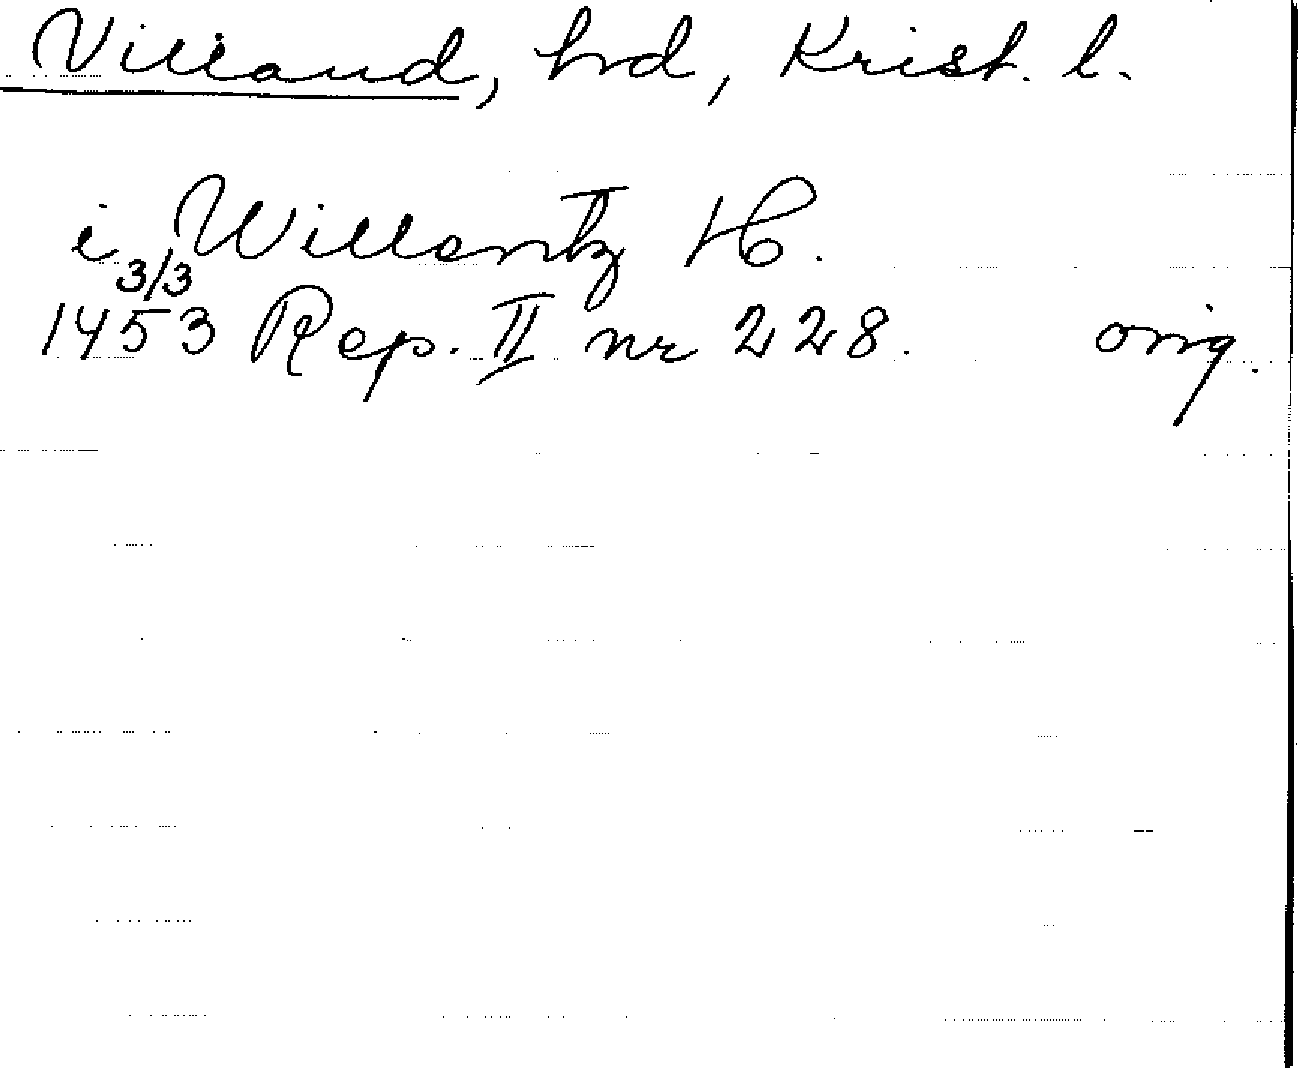 Villand, hd, Krist. l.
i Willantz H.
3/3
1453 Rep. II nr 228. orig.